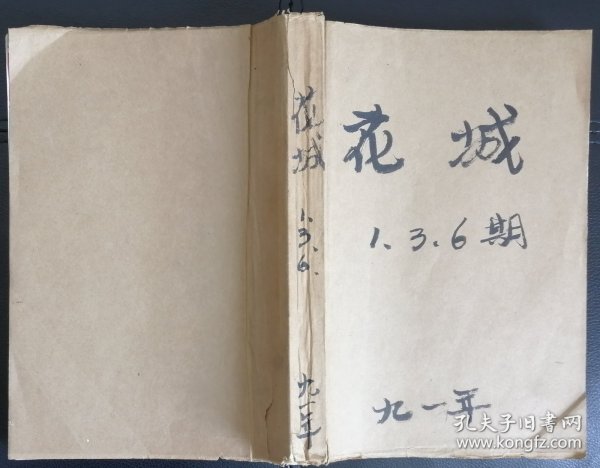 花城
1.3.6.
九一年
花城
1.3.6期
九一年
孔夫子旧书网
www.kongfz.com